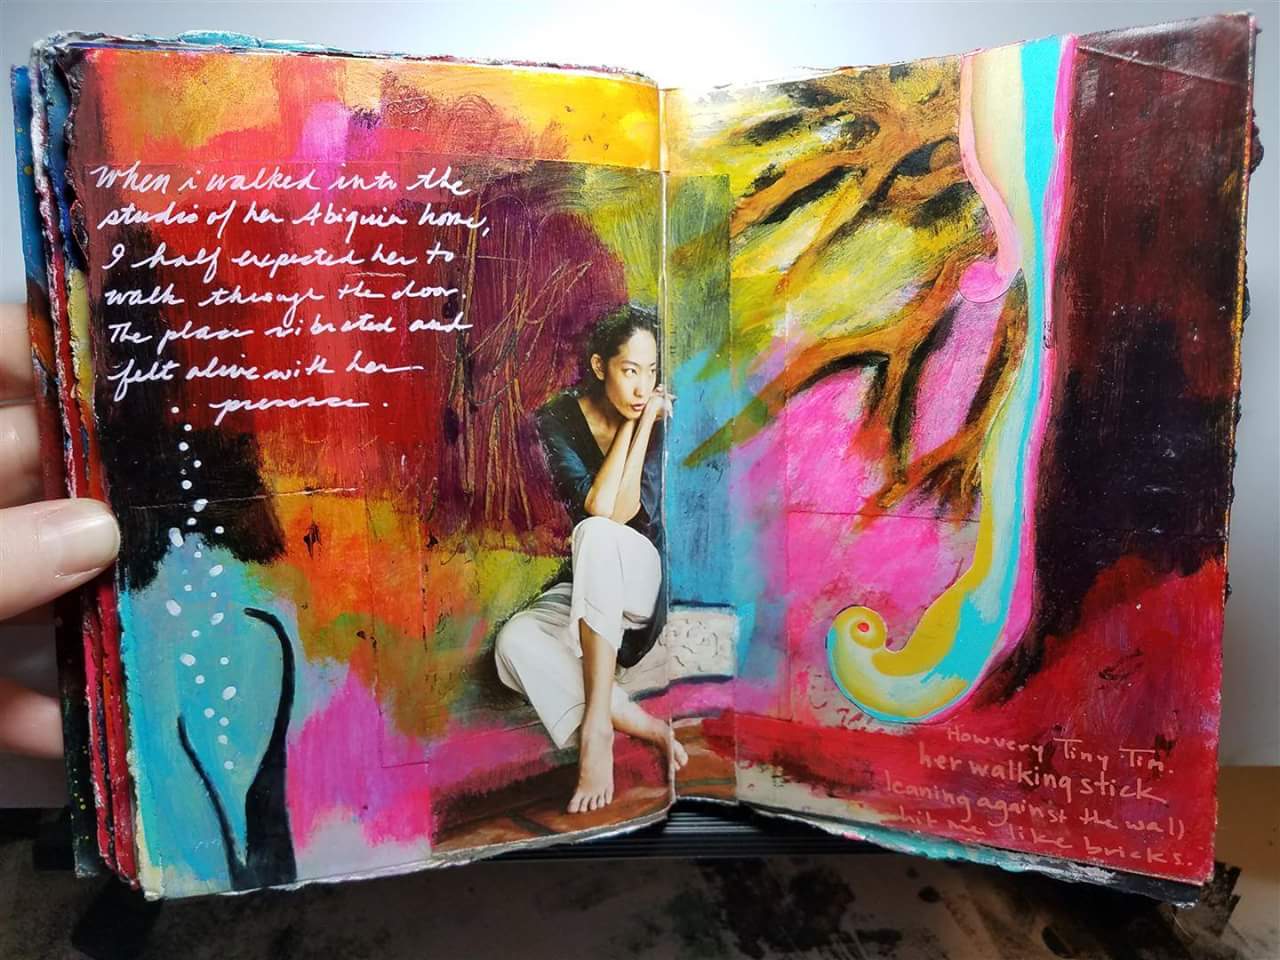 When i walked into the
studio of her Abiquiu home,
I half expected her to
walk through the door.
The place vibrated and
felt alive with her
presence.
How very Tiny Tim.
her walking stick
leaning against the wall
hit me like bricks.